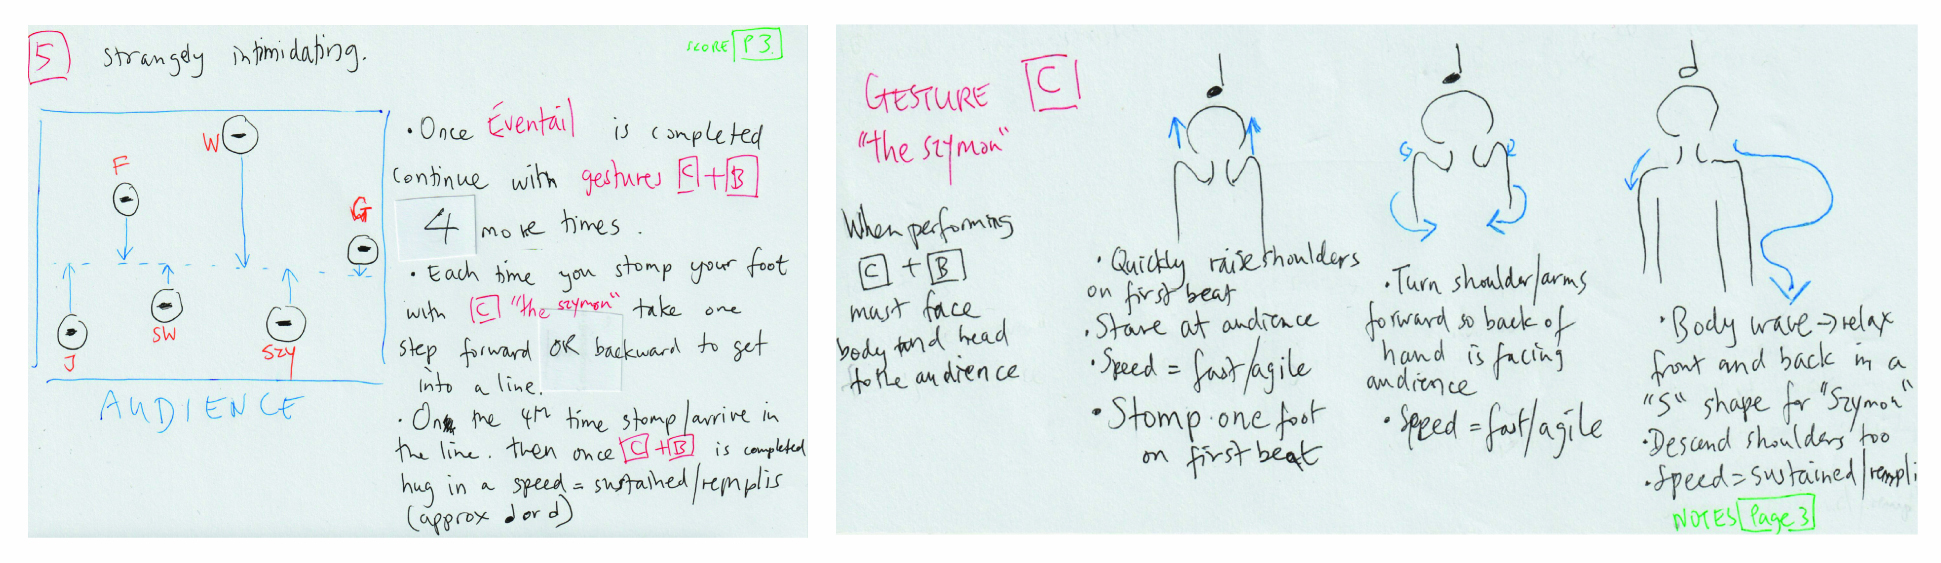 5 strangely intimidating.
SCORE P3.
W
F
G
J
SW
SZY
AUDIENCE
• Once Éventail is completed
continue with gestures C + B
4 more times.
• Each time you stomp your foot
with C "the szymon" take one
step forward OR backward to get
into a line.
• On the 4th time stomp/arrive in
the line. then once C + B is completed
hug in a speed = sustained/remplis
(approx ♩ or 𝅗𝅥)
GESTURE C
"the szymon"
When performing
C + B
must face
body and head
to the audience
• Quickly raise shoulders
on first beat
• Stare at audience
• Speed = fast/agile
• Stomp one foot
on first beat
• Turn shoulder/arms
forward so back of
hand is facing
audience
• Speed = fast/agile
• Body wave → relax
front and back in a
"S" shape for "Szymon"
• Descend shoulders too
• Speed = sustained/rempli
NOTES Page 3